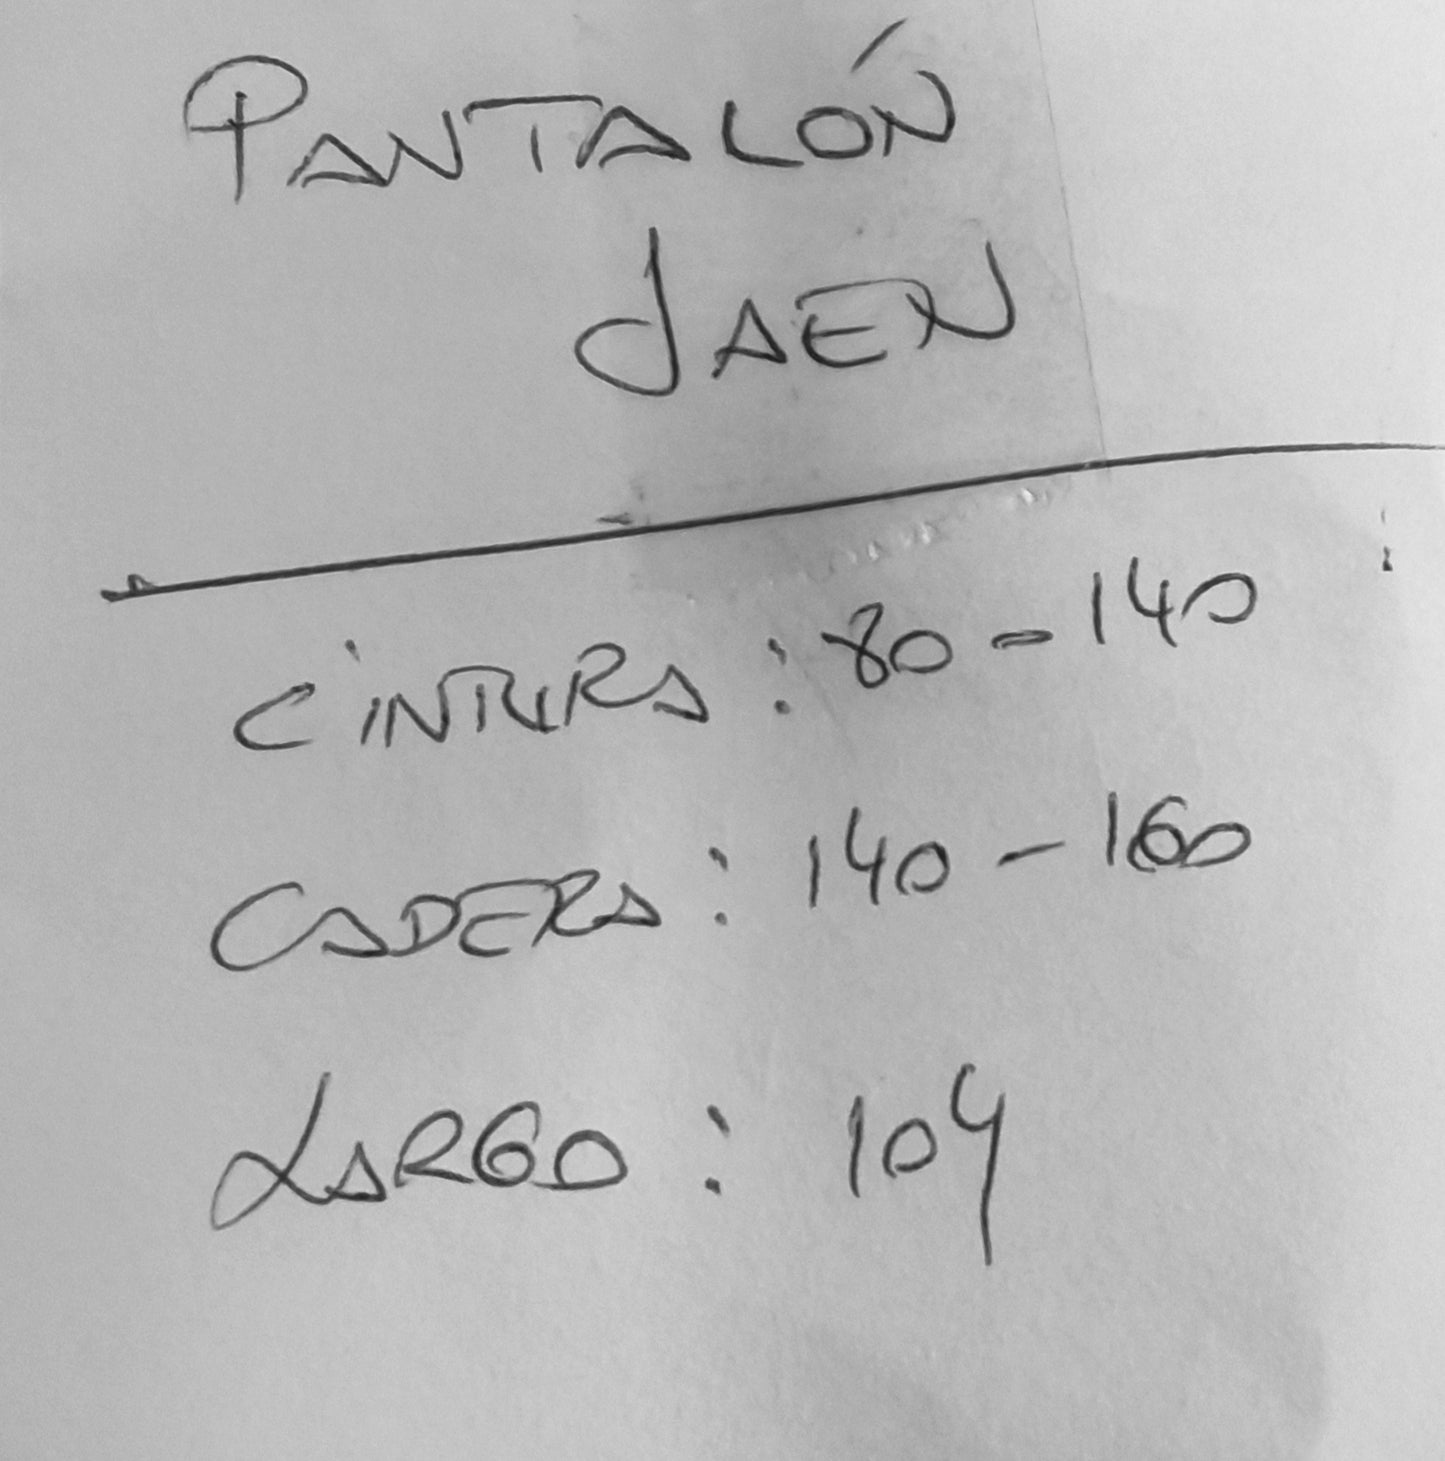 PANTALÓN
JAEN
CINTURA: 80-140
CADERA: 140-160
LARGO: 104